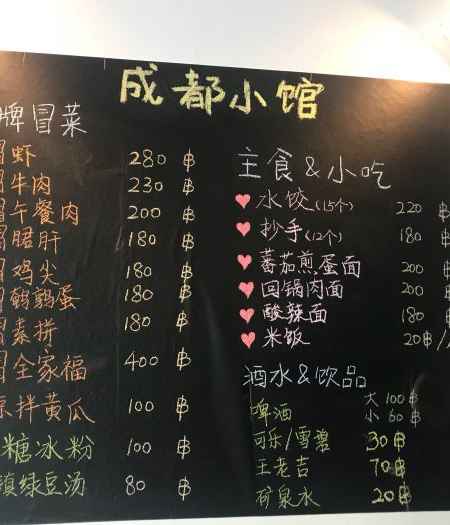 成都小馆
牌冒菜
冒虾 280 ฿
冒牛肉 230 ฿
冒午餐肉 200 ฿
冒郡肝 180 ฿
冒鸡尖 180 ฿
冒鹌鹑蛋 180 ฿
冒素拼 180 ฿
冒全家福 400 ฿
凉拌黄瓜 100 ฿
糖冰粉 100 ฿
镇绿豆汤 80 ฿
主食&小吃
♥ 水饺(15个) 220 ฿
♥ 抄手(12个) 180 ฿
♥ 蕃茄煎蛋面 200 ฿
♥ 回锅肉面 200 ฿
♥ 酸辣面 180 ฿
♥ 米饭 20฿/
酒水&饮品
啤酒 大 100฿
小 60฿
可乐/雪碧 30฿
王老吉 70฿
矿泉水 20฿